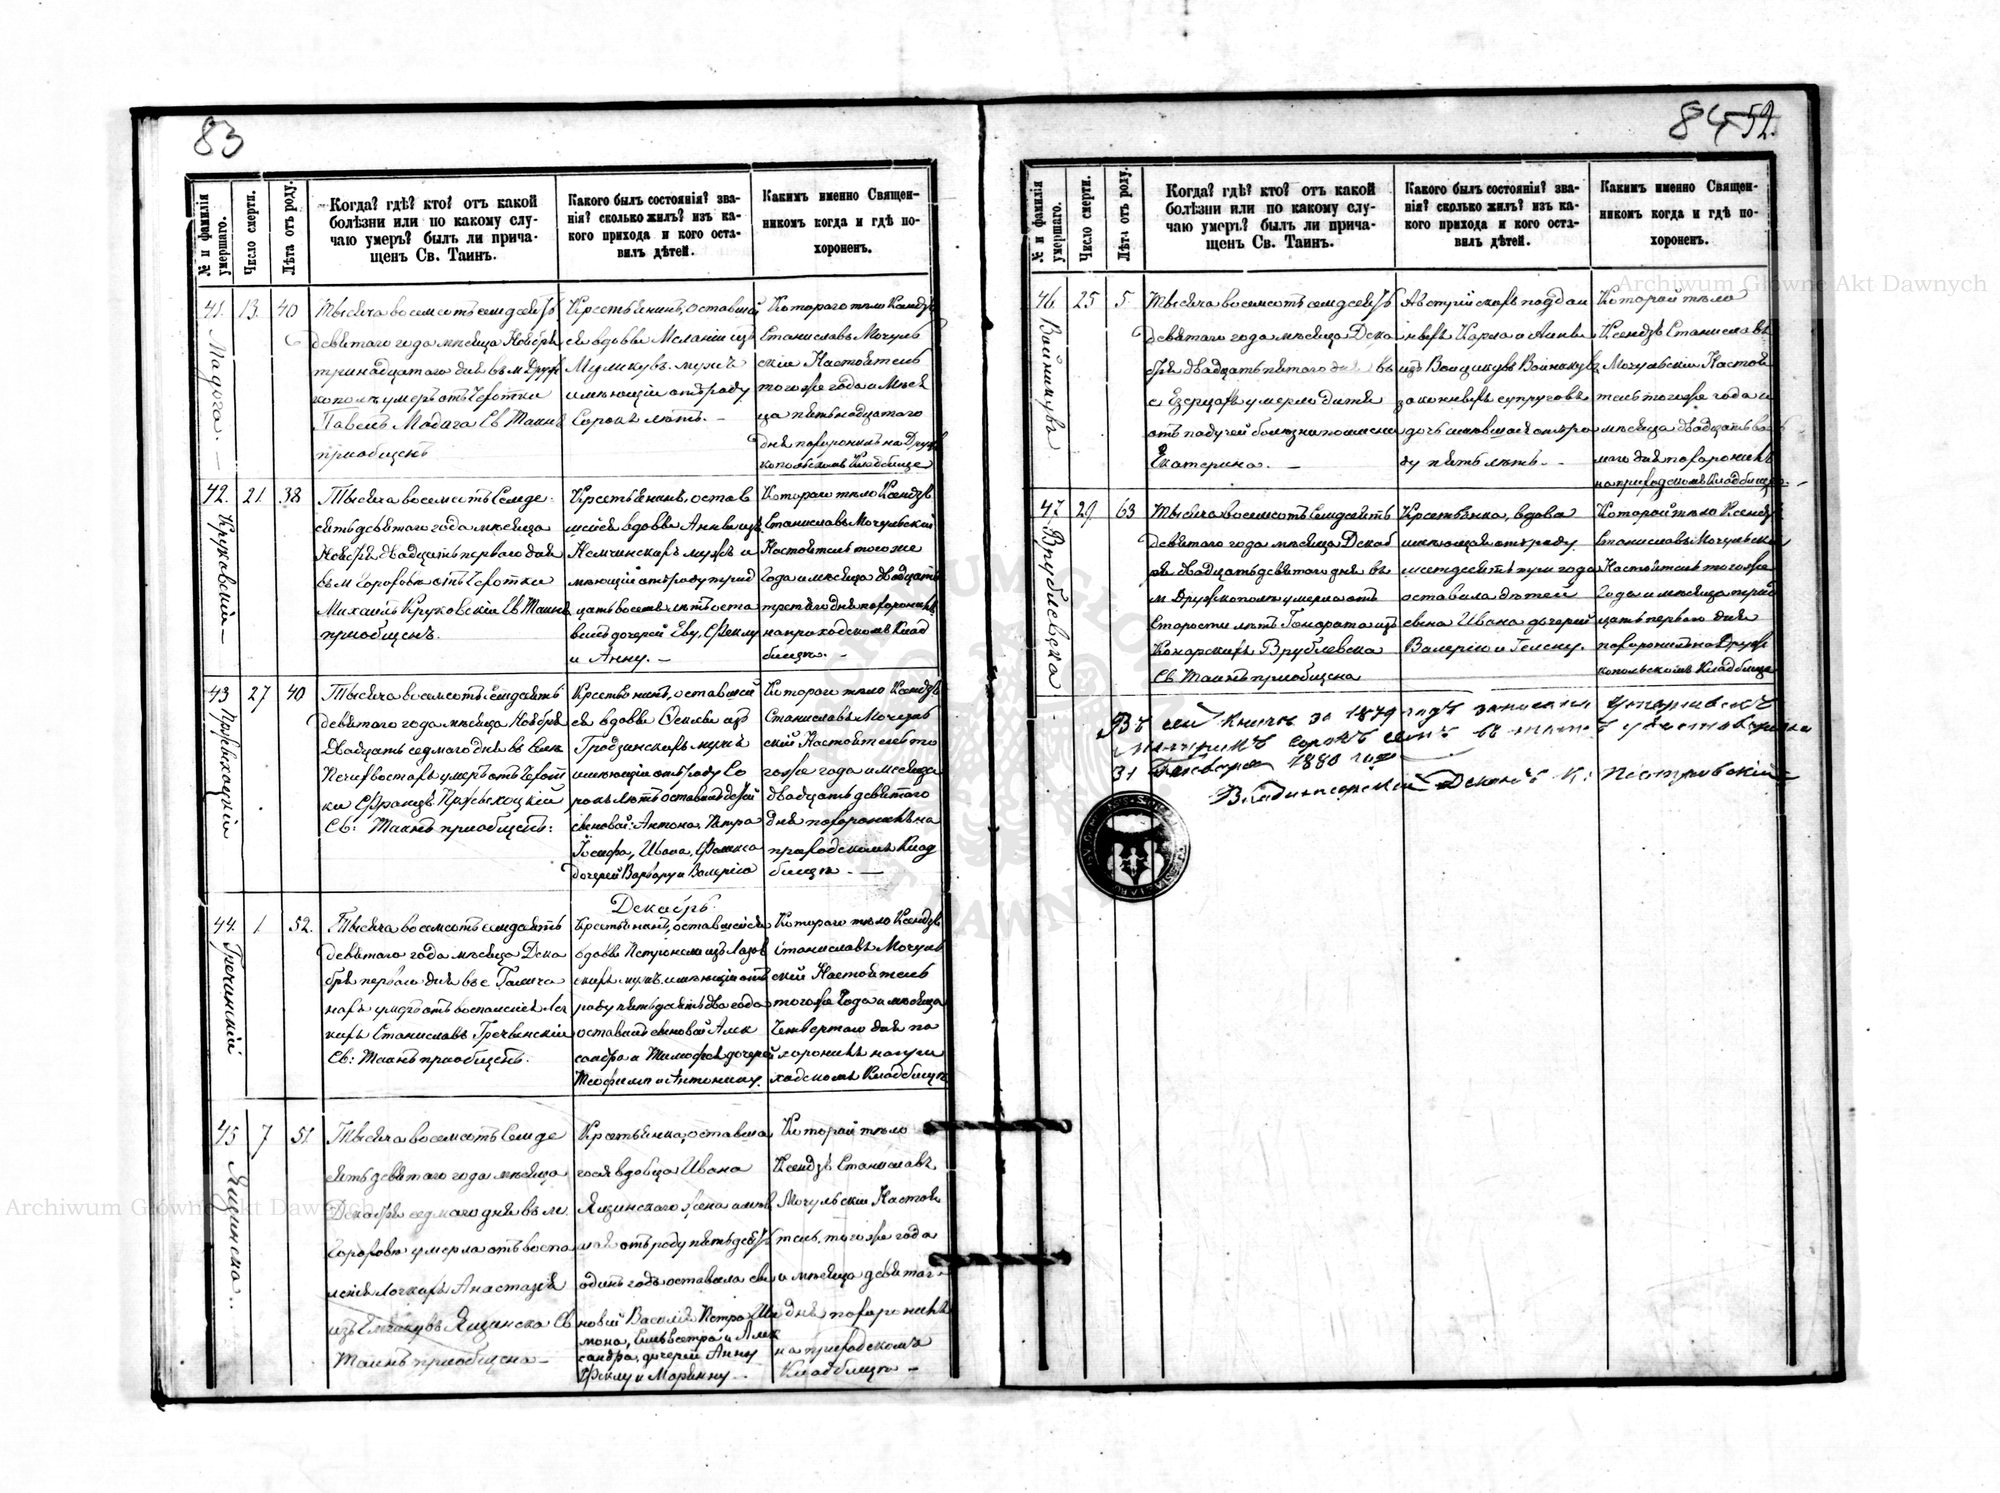 83
№ и фамилія умершаго.
Число смерти.
Лѣта отъ роду.
Когда? гдѣ? кто? отъ какой
болѣзни или по какому слу-
чаю умеръ? былъ ли прича-
щенъ Св. Таинъ.
Какого былъ состоянія? зва-
нія? сколько жилъ? изъ ка-
кого прихода и кого оста-
вилъ дѣтей.
Какимъ именно Священ-
никомъ когда и гдѣ по-
хороненъ.
41.
Мадога. —
13.
40
Тысяча восемсотъ семдесятъ
девятого года мѣсяца Ноября
тринадцатого дня въ м Друж
кополь умеръ отъ чехотки
Павелъ Мадога Св Таинъ
приобщенъ
Крестьянинъ, оставшей
ся вдовы Меланіи изъ
мужъ
имѣющій отъ роду
Сорокъ лѣтъ. —
Котораго тѣло Ксендзъ
Станиславъ Мочуль
скій Настоятель
того же года и Мѣся
ца пятьнадцатого
дня похоронилъ на Друж
копольскомъ Кладбище
42.
Круковскій —
21.
38
Тысяча восемсотъ Семде
сятъ девятого года мѣсяца
Ноября двадцать первого дня
въ м Гороховѣ отъ чехотки
Михаилъ Круковскій Св Таинъ
приобщенъ.
Крестьянинъ, остав
шейся вдовы Анны изъ
Немчинскихъ мужъ и
мѣющій отъ роду трид
цать восемь лѣтъ оста
вилъ дочерей Еву, Феклу
и Анну. —
Котораго тѣло Ксендзъ
Станиславъ Мочульскій
Настоятель того же
Года и мѣсяца двадцать
третяго дня похоронилъ
на приходскомъ Клад
бищѣ. —
43
27
40
Тысяча восемсотъ Семдесятъ
девятого года мѣсяца Ноября
Двадцать седмого дня въ
умеръ отъ чехот
ки Францъ
Св: Таинъ приобщенъ:
Крестьянинъ, оставшей
ся вдовы изъ
Гродзинскихъ мужъ
имѣющій отъ роду Со
рокъ лѣтъ оставилъ дѣтей
сыновей: Антона, Петра
Іосифа, Ивана, Феликса
дочерей Варвару и Валерію
Котораго тѣло Ксендзъ
Станиславъ Мочуль
скій Настоятель то
гоже года и мѣсяца
двадцать девятого
дня похоронилъ на
приходскомъ Клад
бищѣ. —
Декабрь.
44.
1.
52.
Тысяча восемсотъ семдесятъ
девятого года мѣсяца Дека
бря первого дня въ с
умеръ отъ воспаленія Лег
кихъ Станиславъ
Св: Таинъ приобщенъ.
Крестьянинъ, оставшейся
вдовы Петронели изъ
скихъ мужъ имѣющій отъ
роду пятьдесятъ два года
оставилъ сыновей Алек
сандра и Тимофея дочерей
Теофилю и Антонину.
Котораго тѣло Ксендзъ
Станиславъ Мочуль
скій Настоятель
того же Года и мѣсяца
Четвертого дня по
хоронилъ на при
ходскомъ Кладбищѣ
45
Ящинска..
7
51.
Тысяча восемсотъ Семде
сятъ девятого года мѣсяца
Декабря седмого дня въ м.
Гороховѣ умерла отъ воспа
ленія Легкихъ Анастазія
изъ Ящинска Св
Таинъ приобщена —
Крестьянка, оставша
гося вдовца Ивана
Ящинского жена имѣв
шая отъ роду пятьдесятъ
одинъ годъ оставила сы
новей Василія Петра Ши
мона, Сильвестра и Алек
сандра, дочерей Анну
Феклу и Маріянну. —
Которой тѣло
Ксендзъ Станиславъ
Мочульскій Настоя
тель, того же года
и мѣсяца девятаг
дня похоронилъ
на приходскомъ
Кладбищѣ —
84 52.
№ и фамилія умершаго.
Число смерти.
Лѣта отъ роду.
Когда? гдѣ? кто? отъ какой
болѣзни или по какому слу-
чаю умеръ? былъ ли прича-
щенъ Св. Таинъ.
Какого былъ состоянія? зва-
нія? сколько жилъ? изъ ка-
кого прихода и кого оста-
вилъ дѣтей.
Какимъ именно Священ-
никомъ когда и гдѣ по-
хороненъ.
46.
Войникувъ
25
5.
Тысяча восемсотъ семдесятъ
девятого года мѣсяца Дека
бря двадцать пятого дня въ
с Езерцахъ умерло дитя
отъ падучей болѣзни по имени
Екатерина. —
Австрійскихъ поддан
ныхъ Карла и Анны
изъ
законныхъ супруговъ
дочь имѣвшая отъ ро
ду пять лѣтъ. —
Которой тѣло
Ксендзъ Станиславъ
Мочульскій Настоя
тель того же года и
мѣсяца двадцать вось
мого дня похоронилъ
на приходскомъ Кладбищѣ. —
47.
Врублевска
29.
63
Тысяча восемсотъ Семдесятъ
девятого года мѣсяца Декаб
ря двадцать девятого дня въ
м Дружкополь умерла отъ
Старости лѣтъ Гонората изъ
Конарскихъ Врублевска
Св Таинъ приобщена
Крестьянка, вдова
имѣющая отъ роду
шестдесятъ три года
оставила дѣтей
сына Ивана дочерей
Валерію и Гелену.
Которой тѣло Ксендзъ
Станиславъ Мочульскій
Настоятель того же
Года и мѣсяца трид
цать первого дня
похоронилъ на Друж
копольскомъ Кладбище
Въ сей книгѣ за 1879 годъ записано умершихъ
сорокъ семь въ чемъ удостовѣряю
31 Января 1880 года
Владимірскій Деканъ К: Піотровскій
Archiwum Główne Akt Dawnych
Archiwum Główne Akt Dawnych